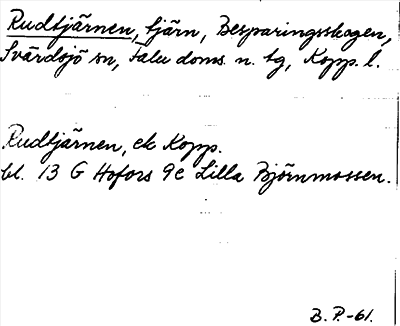 Rudtjärnen, tjärn, Besparingsskogen,
Svärdsjö sn, Falu doms. n. tg, Kopp. l.
Rudtjärnen, ek Kopp.
bl. 13 G Hofors 9e Lilla Björnmossen.
B. P.-61.